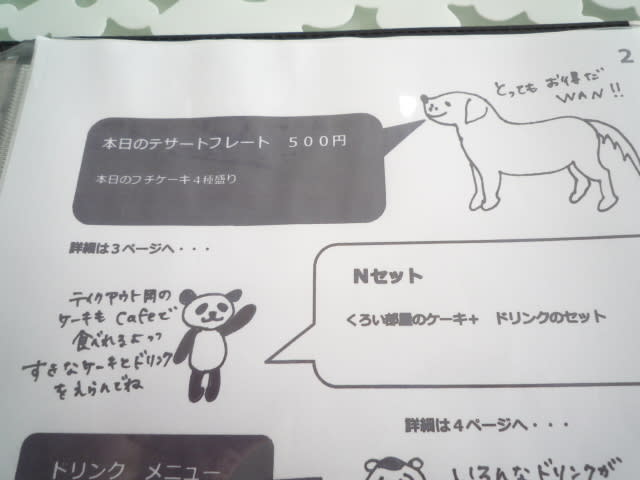 2
とっても お得だ
WAN!!
本日のデザートプレート 500円
本日のプチケーキ4種盛り
詳細は3ページへ・・・
Nセット
くろい部屋のケーキ+ ドリンクのセット
テイクアウト用の
ケーキも cafeで
食べれるよっ
すきなケーキとドリンク
をえらんでね
詳細は4ページへ・・・
ドリンク メニュー
いろんなドリンクが